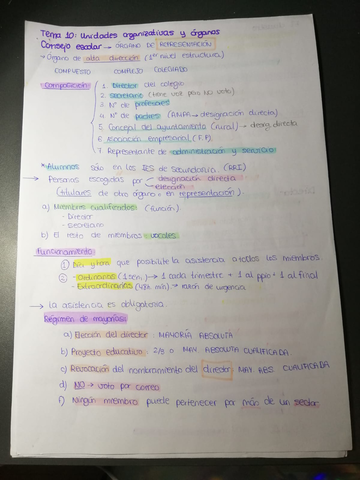 Tema 10: Unidades organizativas y órganos
Consejo escolar → ÓRGANO DE REPRESENTACIÓN
→ Órgano de alta dirección (1er nivel estructura)
COMPUESTO COMPLEJO COLEGIADO
Composición
1. Director del colegio
2. Secretario (tiene voz pero NO voto)
3. Nº de profesores
4. Nº de padres (AMPA → designación directa)
5. Concejal del ayuntamiento (rural) → desig. directa
6. Asociación empresarial (F.P.)
7. Representante de administración y servicio
*Alumnos sólo en los IES de secundaria (RRI)
→ Personas escogidas por designación directa
elección
(titulares de otro órgano o en representación)
a) Miembros cualificados (función)
- Director
- Secretario
b) El resto de miembros vocales
Funcionamiento
① Día y hora que posibilite la asistencia a todos los miembros
② - Ordinarias (1 sem.) → 1 cada trimestre + 1 al ppio + 1 al final
- Extraordinarias (48h. mín) → razón de urgencia
→ La asistencia es obligatoria.
Régimen de mayorías
a) Elección del director: MAYORÍA ABSOLUTA
b) Proyecto educativo: 2/3 o MAY ABSOLUTA CUALIFICADA
c) Revocación del nombramiento del director MAY ABS. CUALIFICADA
d) NO → voto por correo
f) Ningún miembro puede pertenecer por más de un sector